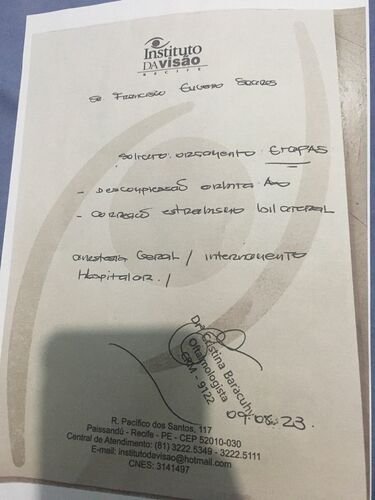 Instituto
DA visão
RECIFE
Sr Francisco Soares
Solicito orçamento ETAPAS
- Descompressão orbita
- Correção estrabismo bilateral
anestesia Geral / internamento
Hospitalar /
Drª Cristina Baracuhy
Oftalmologista
CRM - 9122
09.08.23
R. Pacífico dos Santos, 117
Paissandú - Recife - PE - CEP 52010-030
Central de Atendimento: (81) 3222.5349 - 3222.5111
E-mail: institutodavisao@hotmail.com
CNES: 3141497